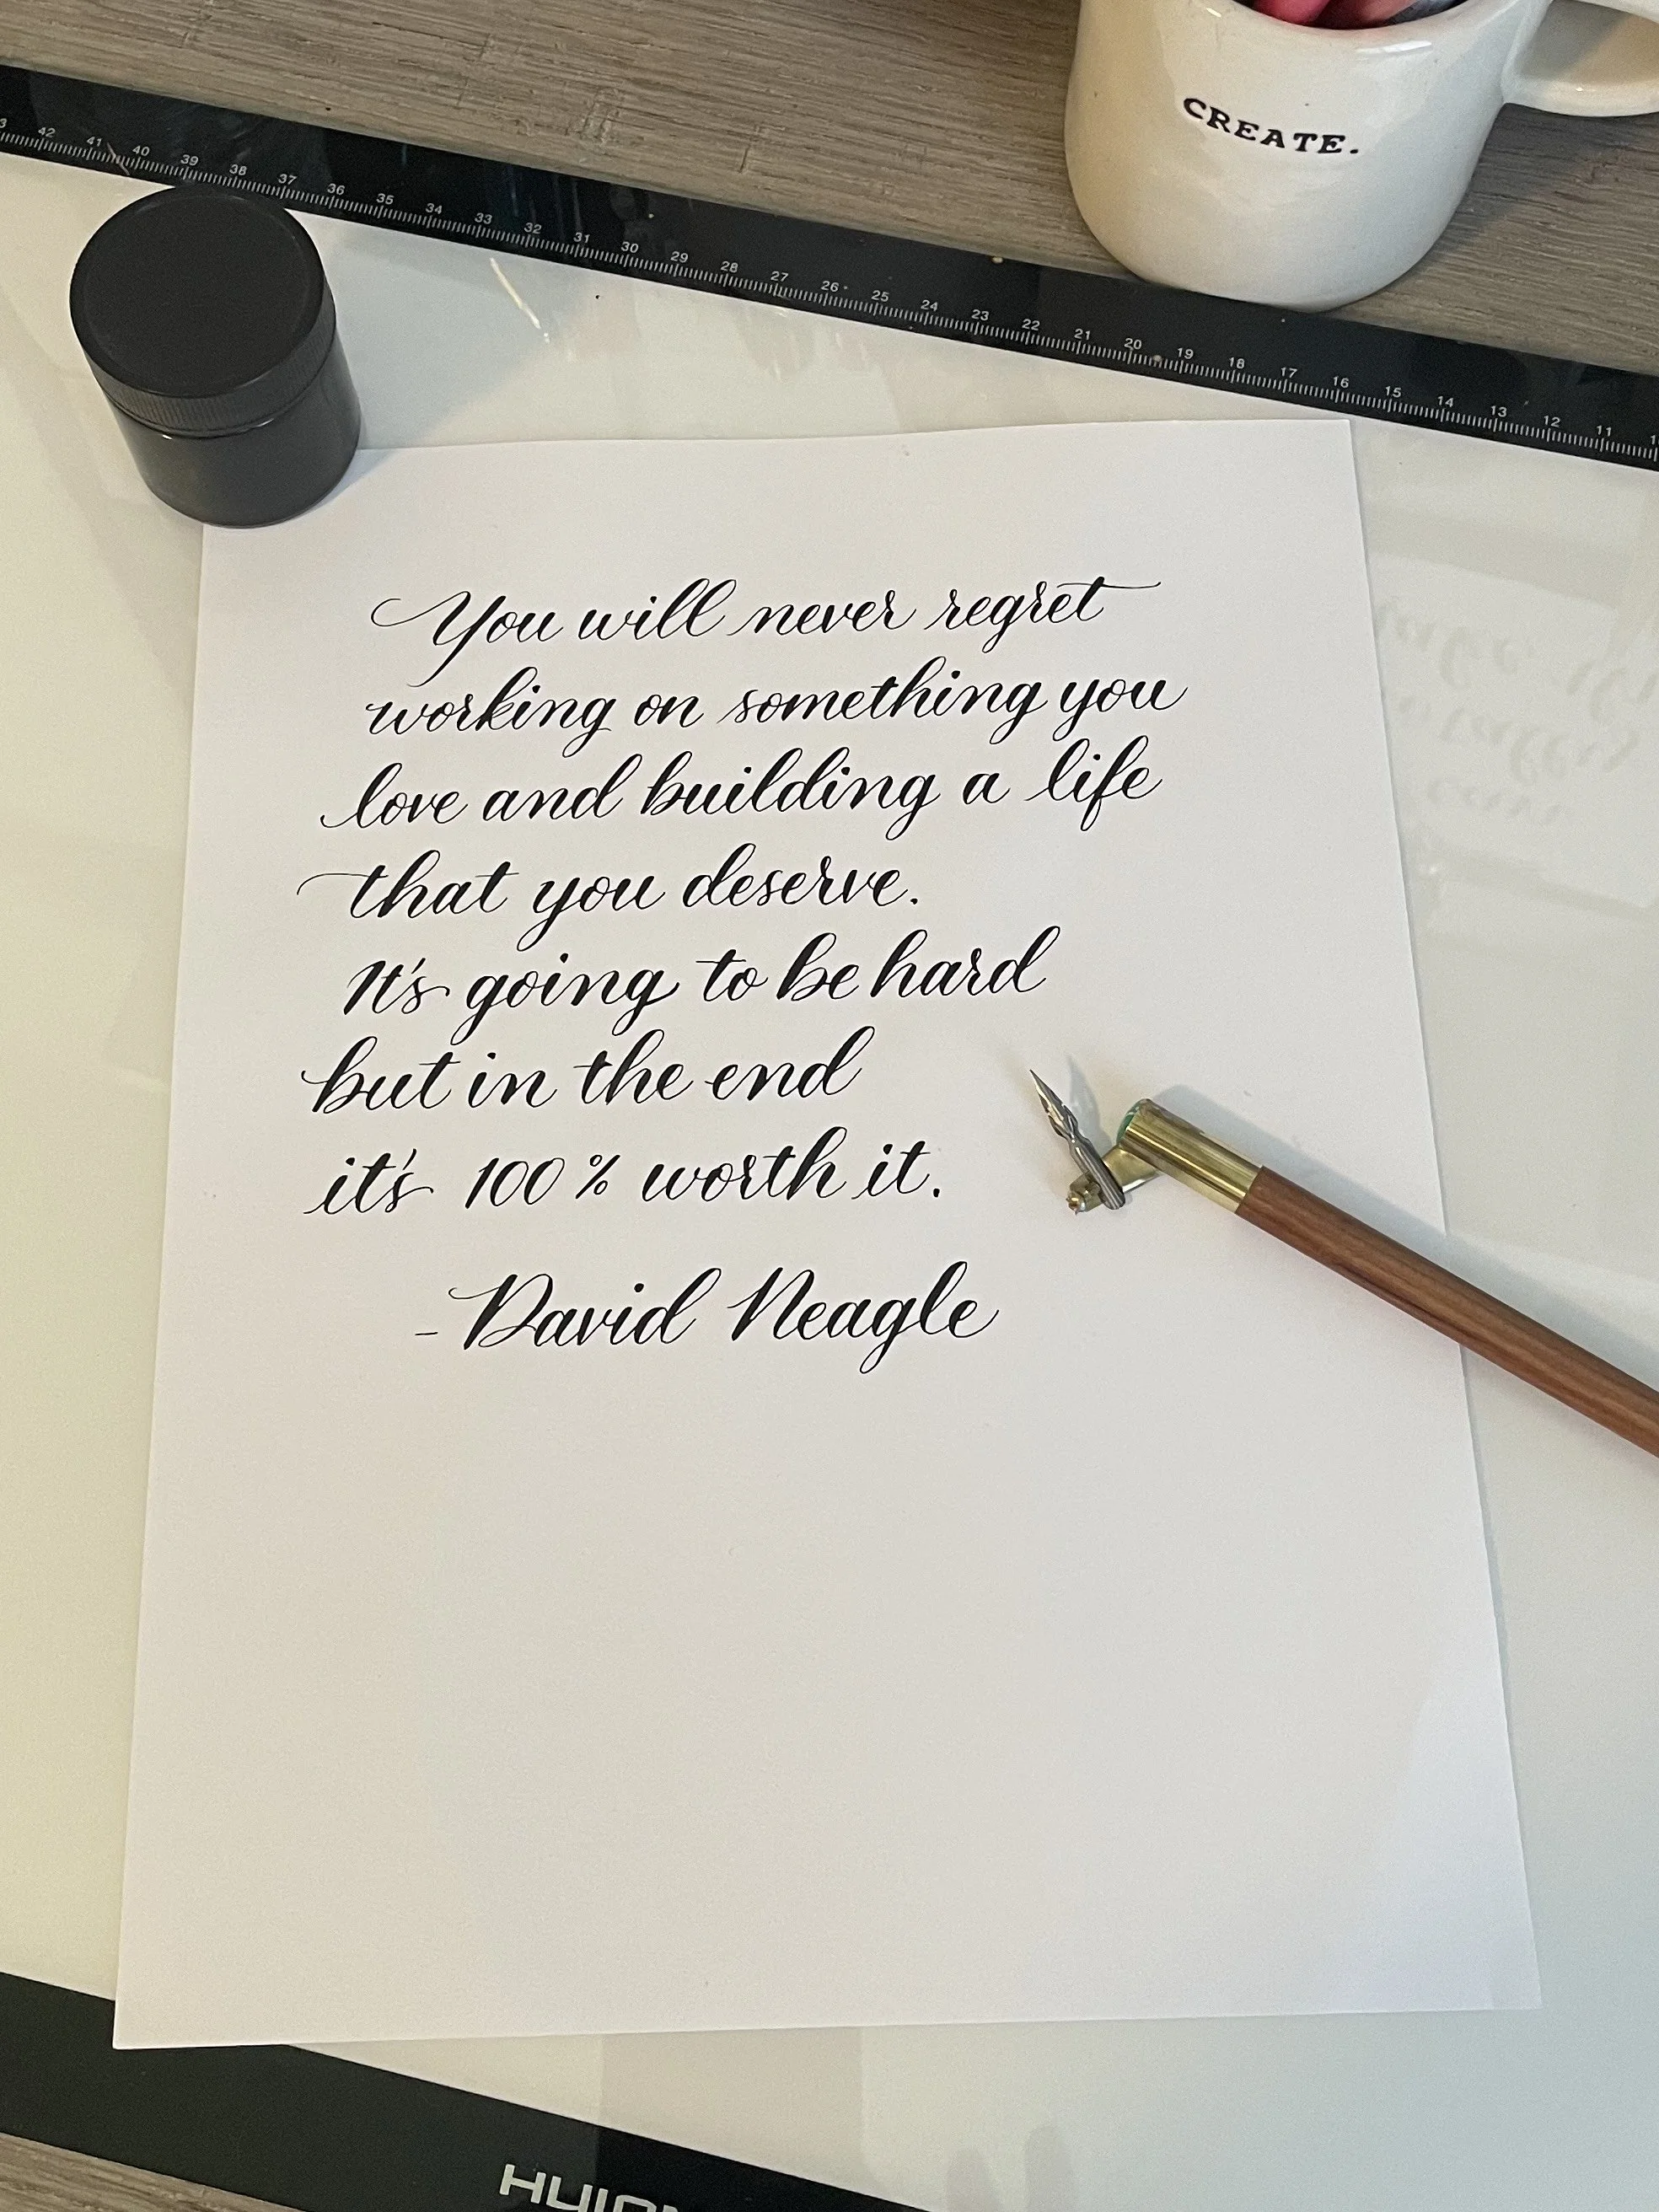 CREATE.
43 42 41 40 39 38 37 36 35 34 33 32 31 30 29 28 27 26 25 24 23 22 21 20 19 18 17 16 15 14 13 12 11
You will never regret
working on something you
love and building a life
that you deserve.
It's going to be hard
but in the end
it's 100% worth it.
- David Neagle
HUION